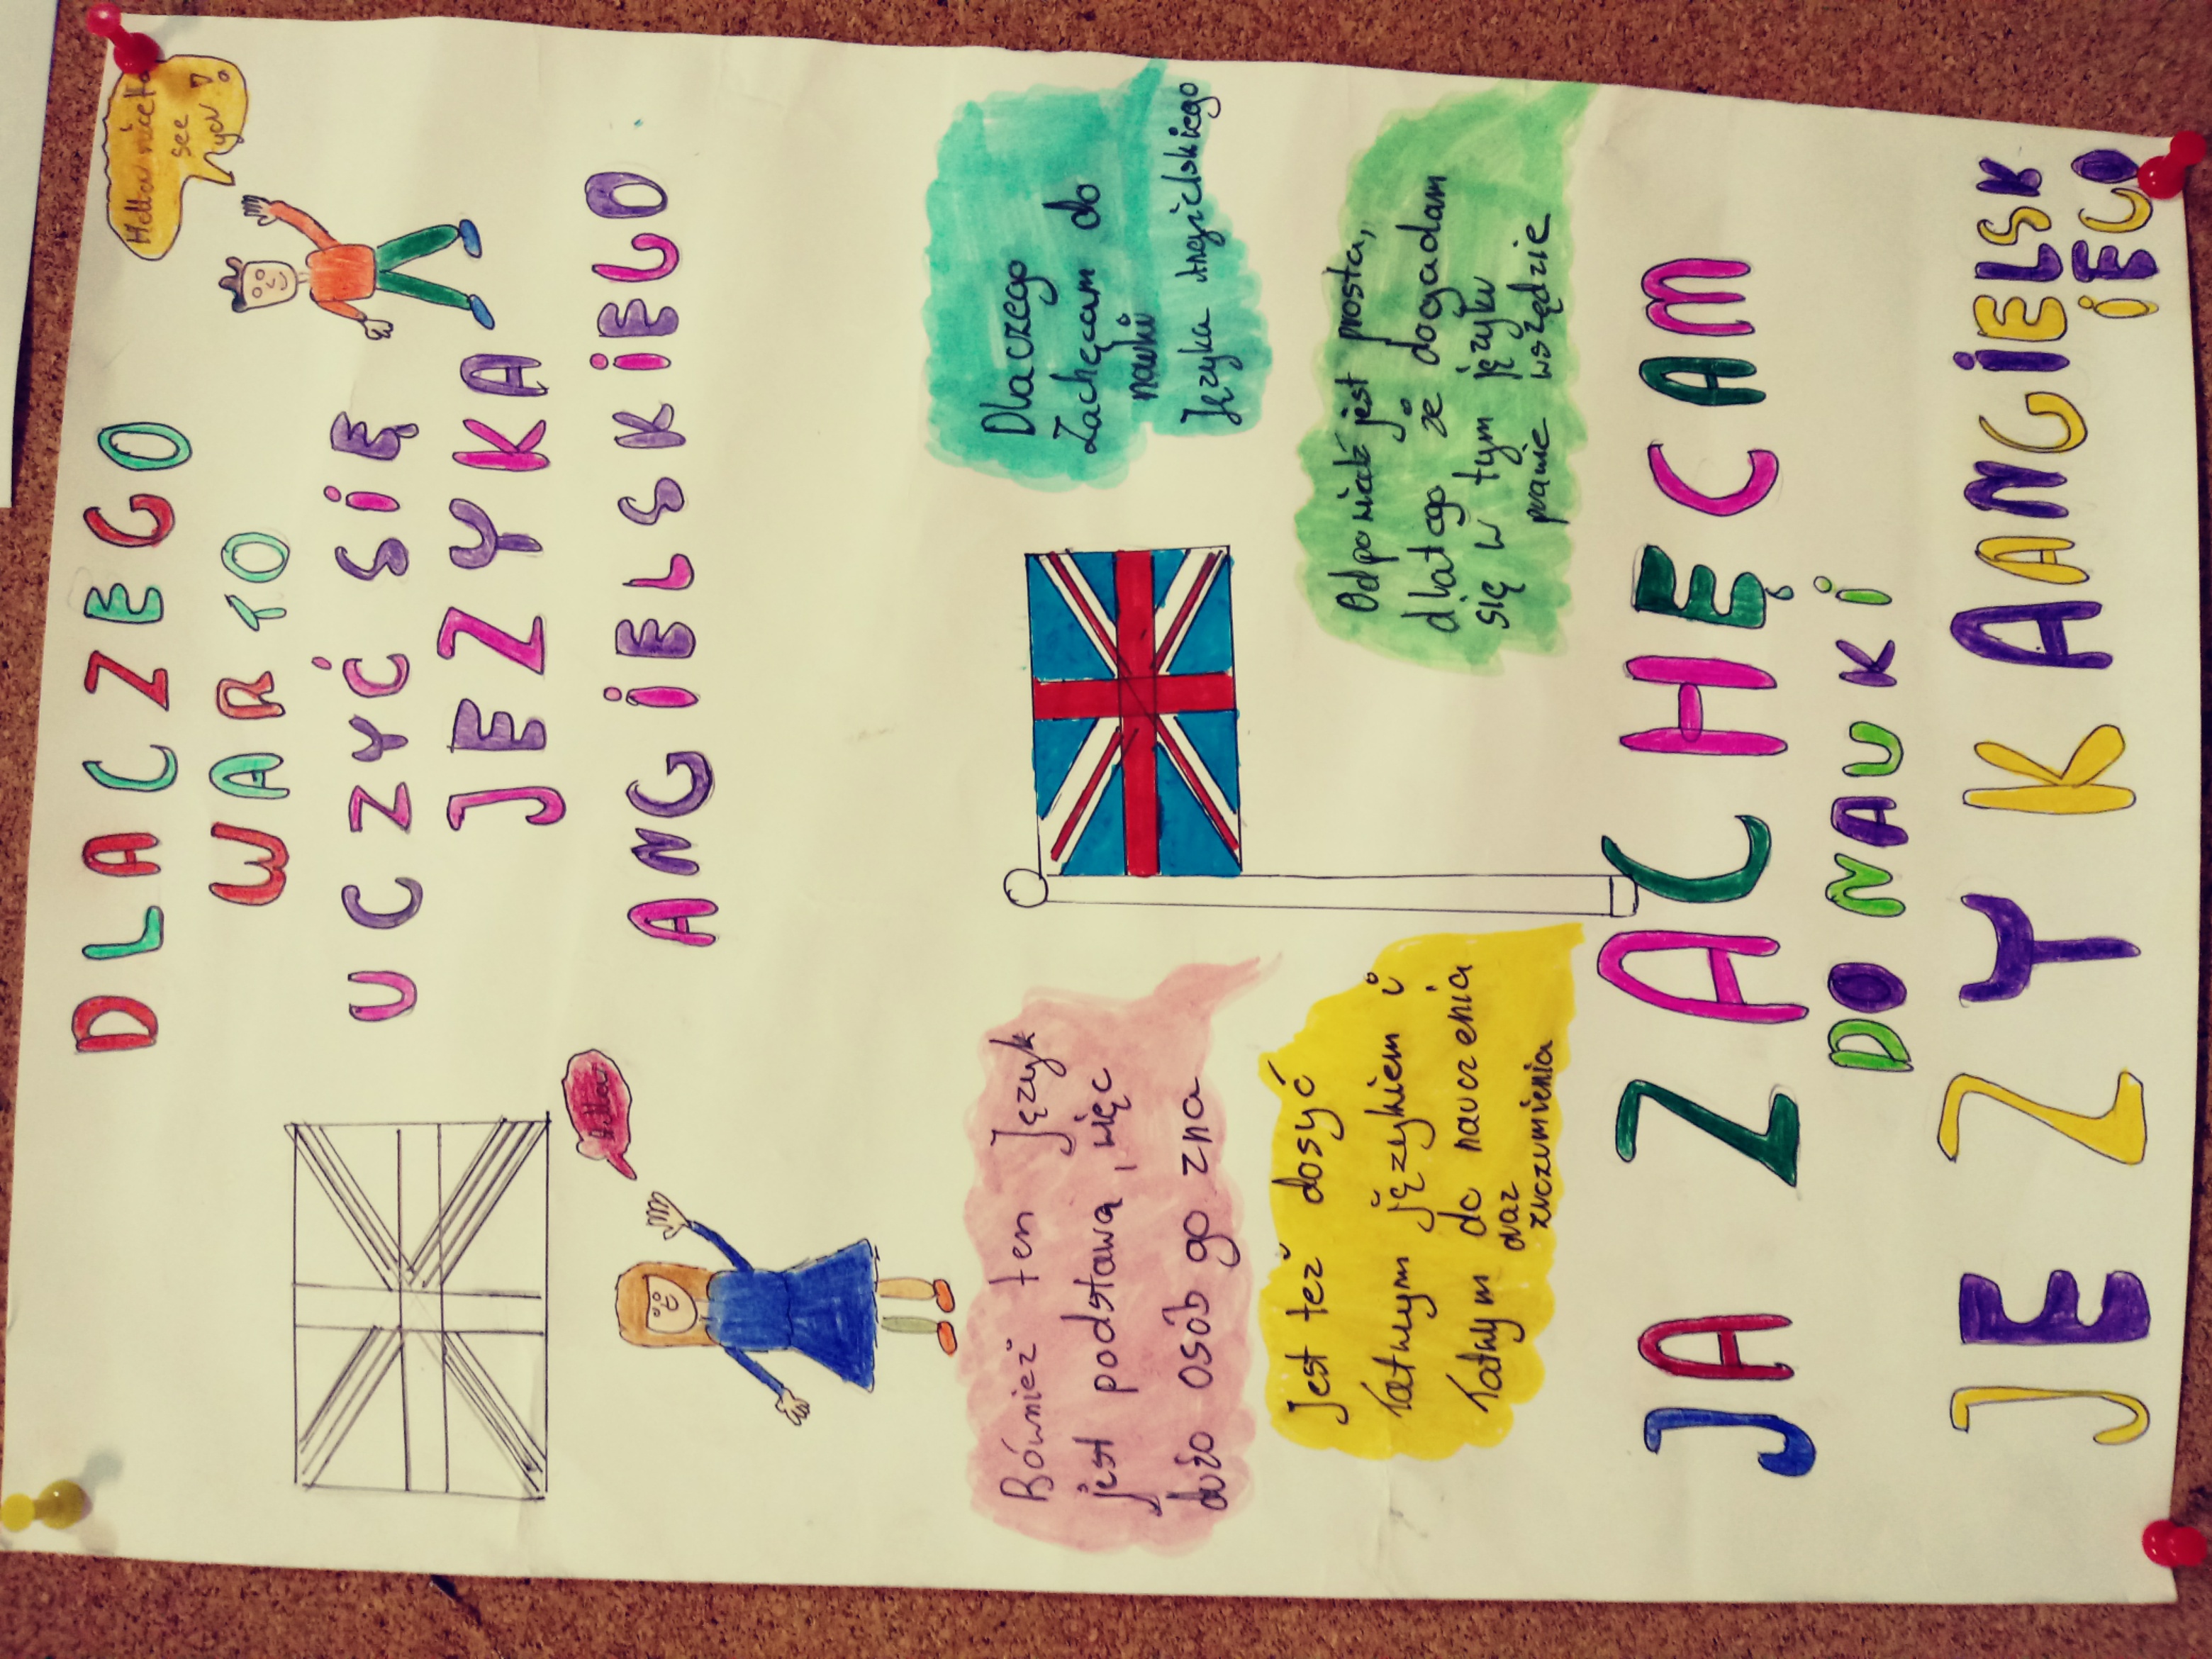 DLACZEGO
WARTO
UCZYĆ SIĘ
JEZYKA
ANGIELSKIEGO
Hellow nice to
see
you!
Hellow
Dlaczego
Zachęcam do
nauki
Języka Angielskiego
Odpowiedź jest prosta,
dlatego że dogadam
się w tym języku
prawie wszędzie
Również ten Język
jest podstawą, więc
dużo osób go zna
Jest też dosyć
łatwym językiem i
łatwym do nauczenia
oraz
zrozumienia
JA ZACHĘCAM
DO NAUKI
JEZYKA ANGIELSK
IEGO